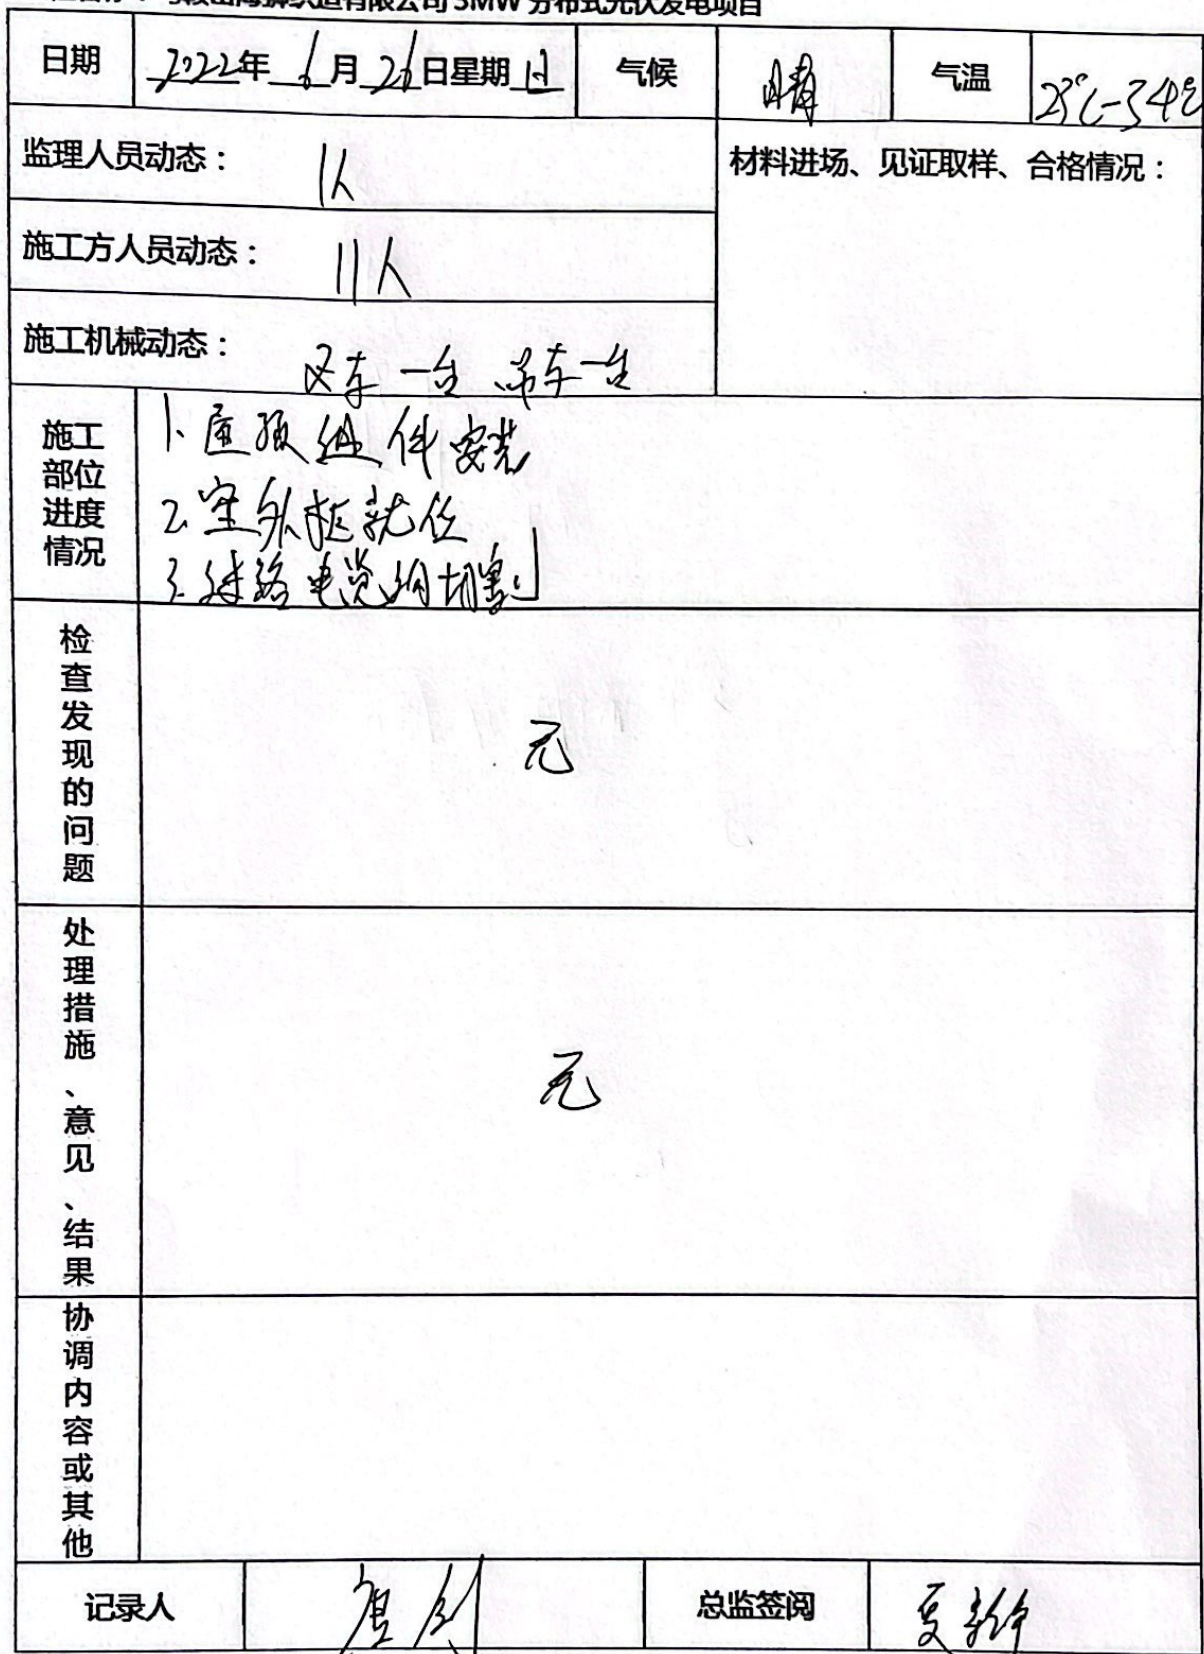 织造有限公司 3MW 分布式光伏发电项目
日期 2022年 6月 26日星期日 气候 晴 气温 23℃-34℃
监理人员动态: 1人 材料进场、见证取样、合格情况:
施工方人员动态: 11人
施工机械动态: 叉车一台 吊车一台
施工部位进度情况
1. 屋顶组件安装
2. 室外柜就位
3. 线路电缆沟切割
检查发现的问题 无
处理措施、意见、结果 无
协调内容或其他
记录人 总监签阅